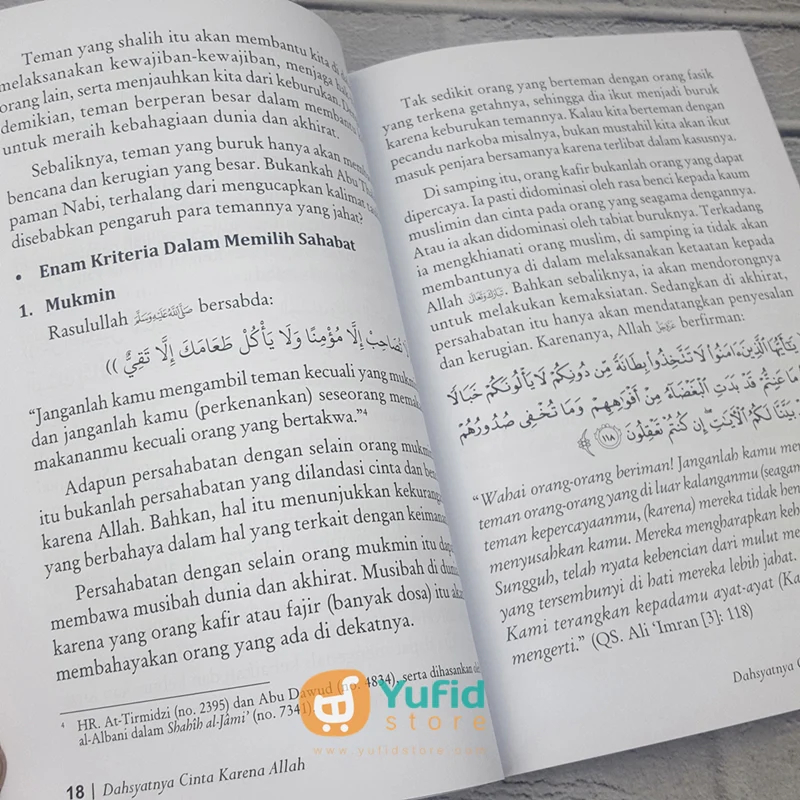 Teman yang shalih itu akan membantu kita di
melaksanakan kewajiban-kewajiban, menjaga
orang lain, serta menjauhkan kita dari keburukan.
demikian, teman berperan besar dalam membantu
untuk meraih kebahagiaan dunia dan akhirat.
Sebaliknya, teman yang buruk hanya akan
bencana dan kerugian yang besar. Bukankah Abu
paman Nabi, terhalang dari mengucapkan kalimat
disebabkan pengaruh para temannya yang jahat?
• Enam Kriteria Dalam Memilih Sahabat
1. Mukmin
Rasulullah ﷺ bersabda:
تُصَاحِبْ إِلَّا مُؤْمِنًا وَلَا يَأْكُلْ طَعَامَكَ إِلَّا تَقِيٌّ ))
“Janganlah kamu mengambil teman kecuali yang
dan janganlah kamu (perkenankan) seseorang
makananmu kecuali orang yang bertakwa.”4
Adapun persahabatan dengan selain orang
itu bukanlah persahabatan yang dilandasi cinta dan
karena Allah. Bahkan, hal itu menunjukkan
yang berbahaya dalam hal yang terkait dengan
Persahabatan dengan selain orang mukmin itu
membawa musibah dunia dan akhirat. Musibah di
karena yang orang kafir atau fajir (banyak dosa) itu
membahayakan orang yang ada di dekatnya.
4 HR. At-Tirmidzi (no. 2395) dan Abu Dawud (no. 4834), serta dihasankan
al-Albani dalam Shahih al-Jâmi’ (no. 7341).
18 | Dahsyatnya Cinta Karena Allah
Tak sedikit orang yang berteman dengan orang fasik
yang terkena getahnya, sehingga dia ikut menjadi buruk
karena keburukan temannya. Kalau kita berteman dengan
pecandu narkoba misalnya, bukan mustahil kita akan ikut
masuk penjara bersamanya karena terlibat dalam kasusnya.
Di samping itu, orang kafir bukanlah orang yang dapat
dipercaya. Ia pasti didominasi oleh rasa benci kepada kaum
muslimin dan cinta pada orang yang seagama dengannya.
Atau ia akan didominasi oleh tabiat buruknya. Terkadang
ia mengkhianati orang muslim, di samping ia tidak akan
membantunya di dalam melaksanakan ketaatan kepada
Allah تَبَارَكَ وَتَعَالَى. Bahkan sebaliknya, ia akan mendorongnya
untuk melakukan kemaksiatan. Sedangkan di akhirat,
persahabatan itu hanya akan mendatangkan penyesalan
dan kerugian. Karenanya, Allah عَزَّوَجَلَّ berfirman:
يَـٰٓأَيُّهَا ٱلَّذِينَ ءَامَنُوا۟ لَا تَتَّخِذُوا۟ بِطَانَةً مِّن دُونِكُمْ لَا يَأْلُونَكُمْ خَبَالًا
مَا عَنِتُّمْ قَدْ بَدَتِ ٱلْبَغْضَآءُ مِنْ أَفْوَٰهِهِمْ وَمَا تُخْفِى صُدُورُهُمْ
بَيَّنَّا لَكُمُ ٱلْـَٔايَـٰتِ إِن كُنتُمْ تَعْقِلُونَ ١١٨
“Wahai orang-orang beriman! Janganlah kamu
teman orang-orang yang di luar kalanganmu
teman kepercayaanmu, (karena) mereka tidak
menyusahkan kamu. Mereka mengharapkan
Sungguh, telah nyata kebencian dari mulut
yang tersembunyi di hati mereka lebih jahat.
Kami terangkan kepadamu ayat-ayat
mengerti.” (QS. Ali ‘Imran [3]: 118)
Dahsyatnya
Yufid
store
www.yufidstore.com